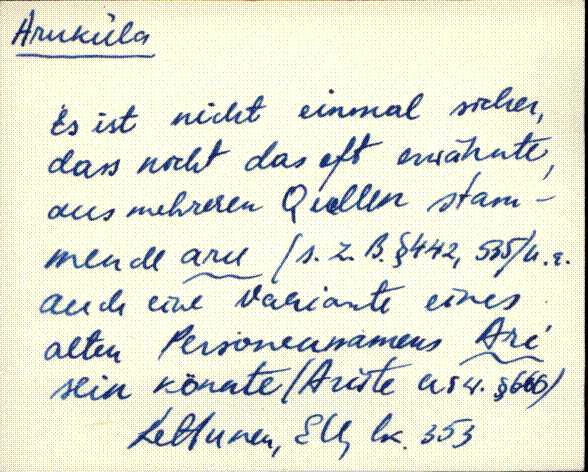 Aruküla
Es ist nicht einmal sicher,
dass nicht das oft erwähnte,
aus mehreren Quellen stam-
mende aru (s. z. B. §442, 535) u. a.
auch eine Variante eines
alten Personennamens Are
sein könnte (Ariste usw. §666)
Lettunen, EU, lk. 353